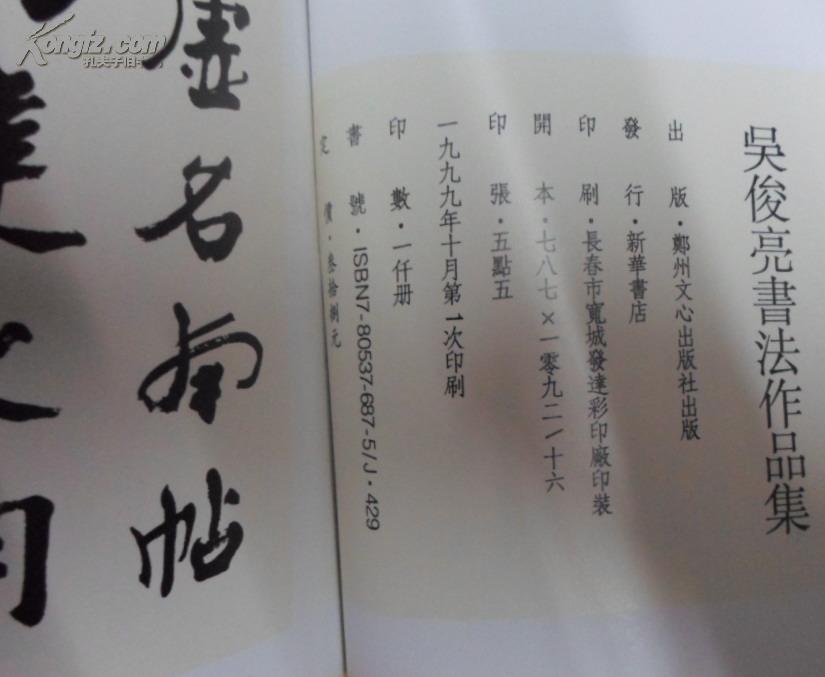 吳俊亮書法作品集
出版·鄭州文心出版社出版
發行·新華書店
印刷·長春市寬城發達彩印廠印裝
開本·七八七×一零九二/十六
印張·五點五
一九九九年十月第1次印刷
印數·一仟册
書號·ISBN7-80537-687-5/J·429
定價·叁拾捌元
虛名南帖
Kongfz.com
孔夫子旧书网